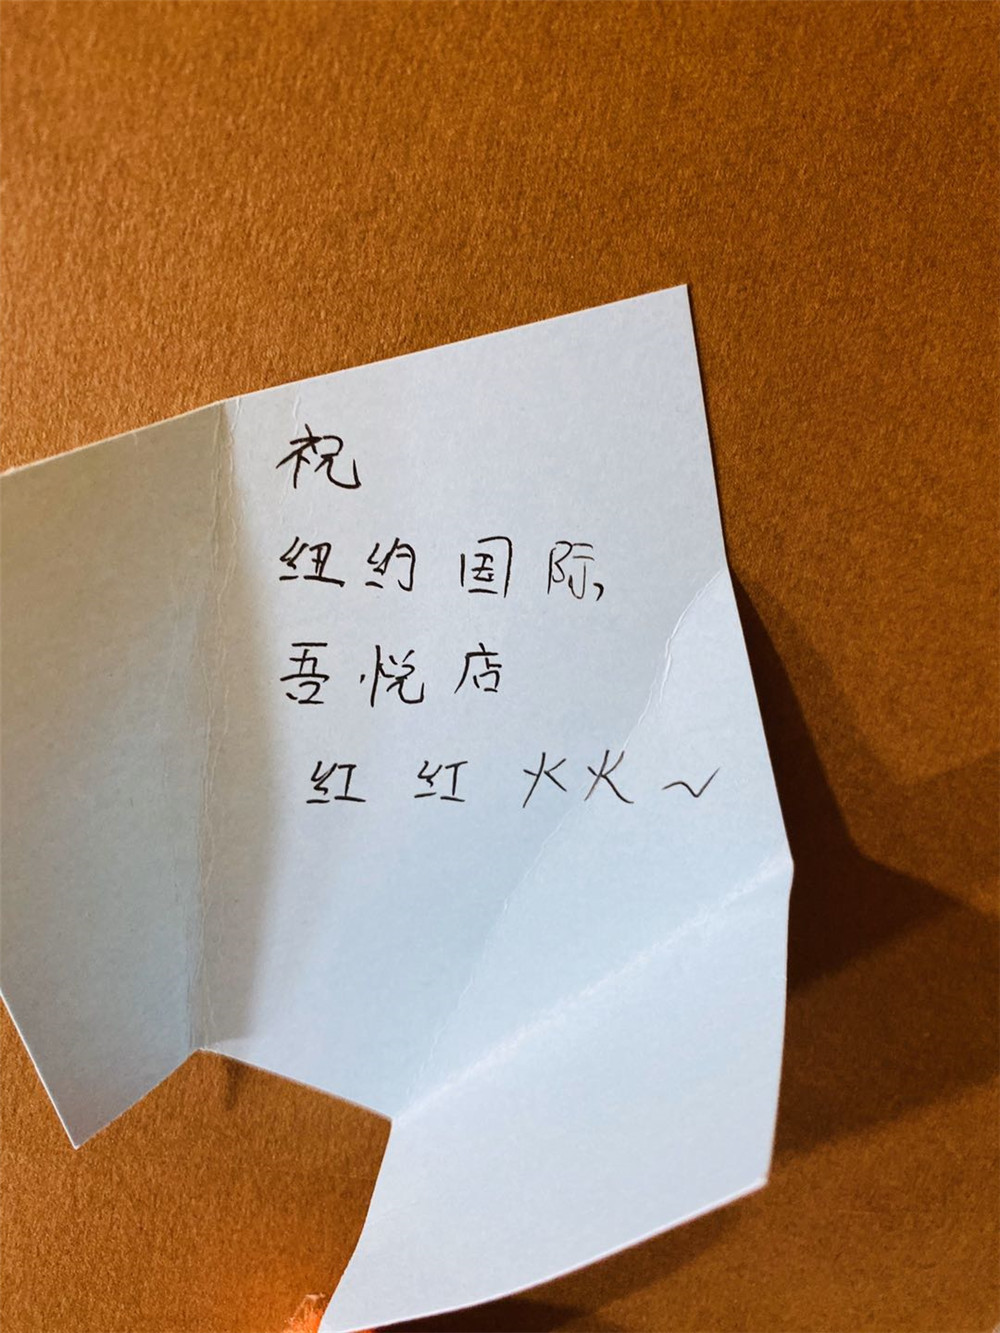 祝
纽约国际
吾悦店
红红火火~